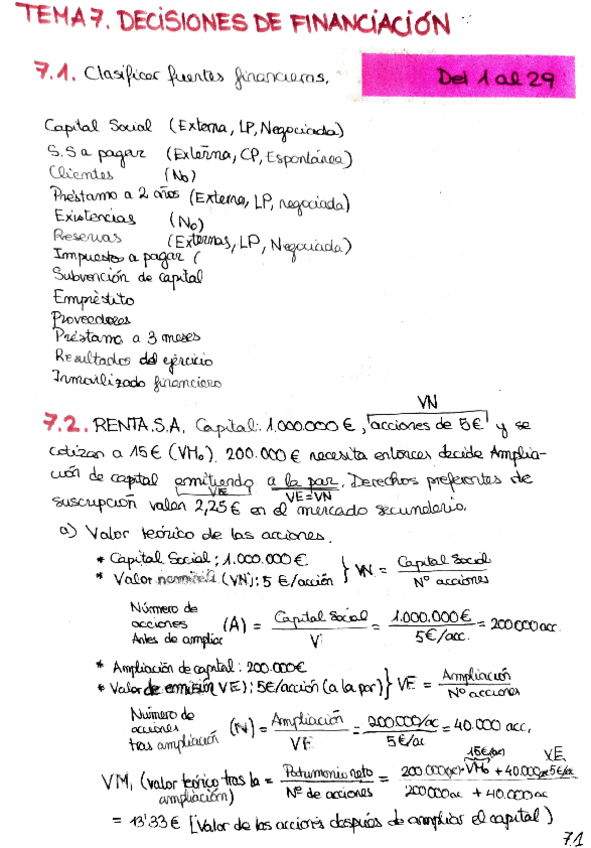 TEMA 7. DECISIONES DE FINANCIACIÓN
7.1. Clasificar fuentes financieras.
Del 1 al 29
Capital Social (Externa, LP, Negociada)
S.S a pagar (Externa, CP, Espontánea)
Clientes (No)
Préstamo a 2 años (Externa, LP, negociada)
Existencias (No)
Reservas (Externas, LP, Negociada)
Impuestos a pagar (
Subvención de capital
Empréstito
Proveedores
Préstamo a 3 meses
Resultados del ejercicio
Inmovilizado financiero
VN
7.2. RENTA.S.A. Capital: 1.000.000 €, acciones de 5€ y se
cotizan a 15€ (VM₀). 200.000 € necesita entonces decide Amplia-
ción de capital emitiendo a la par. Derechos preferentes de
VE VE=VN
suscripción valen 2,25€ en el mercado secundario.
a) Valor teórico de las acciones.
* Capital Social: 1.000.000€
* Valor nominal (VN): 5 €/acción } VN = Capital Social / Nº acciones
Número de acciones Antes de ampliar (A) = Capital Social / V = 1.000.000€ / 5€/acc. = 200000 acc.
* Ampliación de capital: 200.000€
* Valor de emisión VE): 5€/acción (a la par) } VE = Ampliación / Nº acciones
Número de acciones tras ampliación (N) = Ampliación / VE = 200.000/ac / 5€/ac = 40.000 acc.
15€/ac VE
VM₁ (valor teórico tras la ampliación) = Patrimonio neto / Nº de acciones = 200.000ac·VM₀ + 40.000ac·5€/ac / 200000ac + 40.000ac
= 13'33€ [Valor de las acciones después de ampliar el capital)
7.1